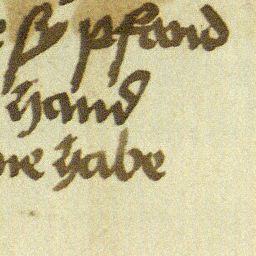 pfand
hand
ne habe